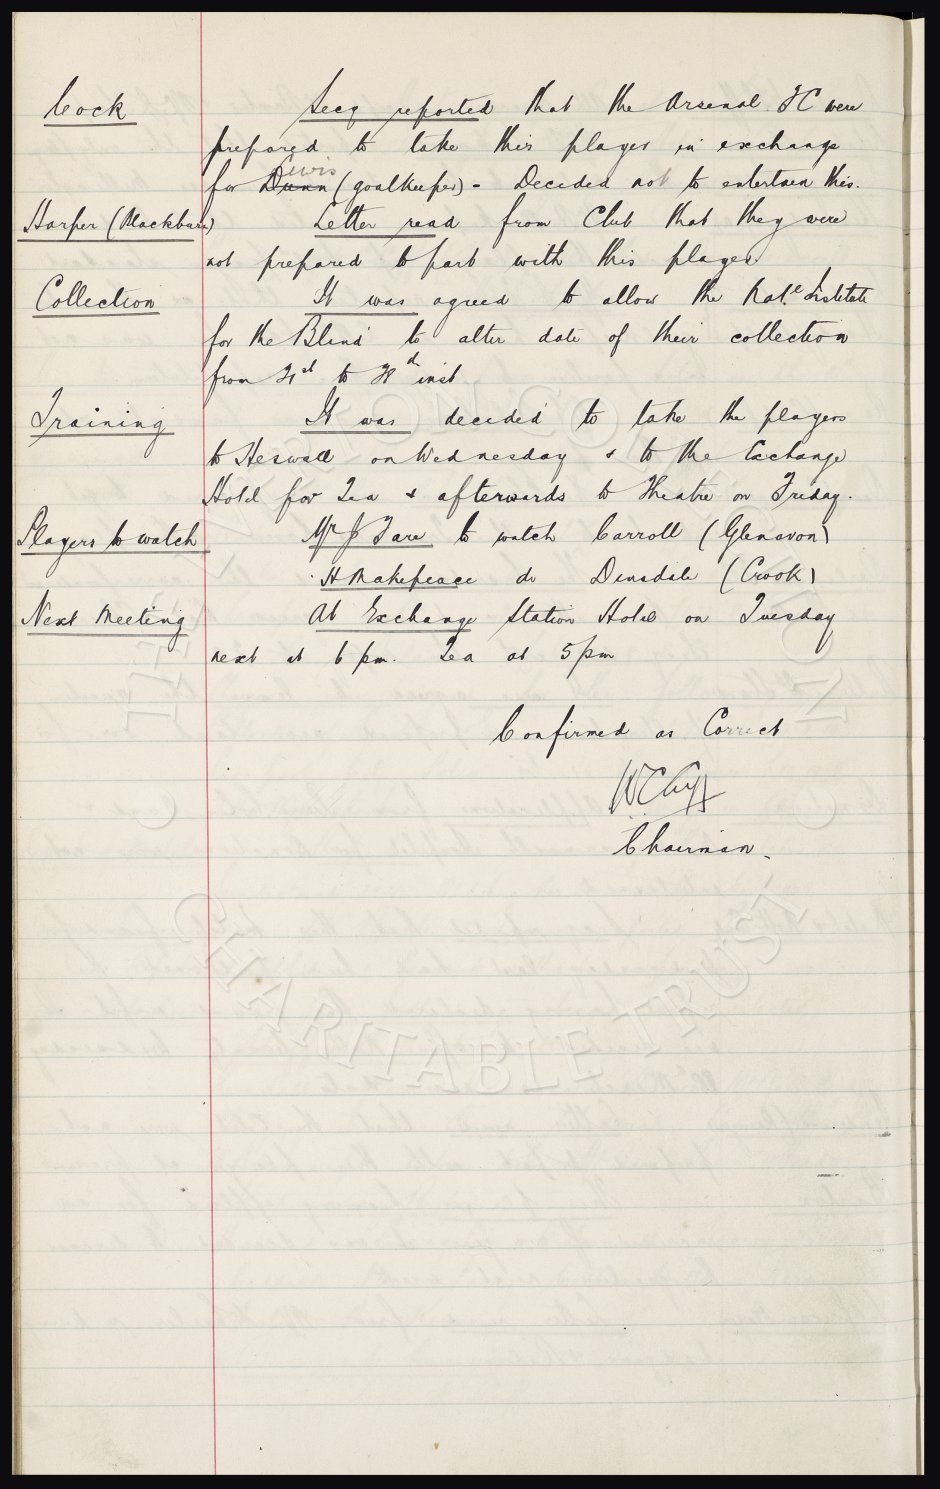 Cock
Secy reported that the Arsenal FC were
prepared to take this player in exchange
for Dunn (goalkeeper) - Decided not to entertain this.
Harper (Blackburn)
Letter read from Club that they were
not prepared to part with this player
Collection
It was agreed to allow the Natl. Institute
for the Blind to alter date of their collection
from to inst
Training
It was decided to take the players
to Heswall on Wednesday & to the Exchange
Hotel for Tea & afterwards to Theatre on Friday.
Players to watch
Mr J Fare to watch Carroll (Glenavon)
H Makepeace do Dinsdale (Crook)
Next Meeting
At Exchange Station Hotel on Tuesday
next at 6 pm. Tea at 5 pm
Confirmed as Correct
Chairman.
THE EVERTON COLLECTION
CHARITABLE TRUST